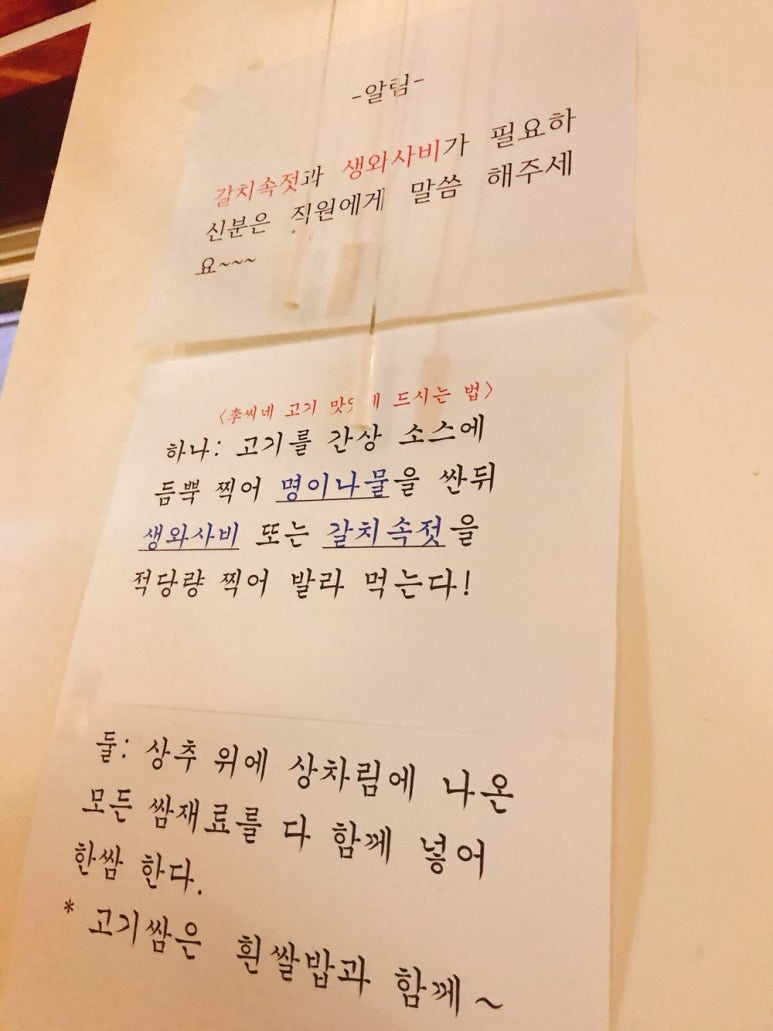 -알림-
갈치속젓과 생와사비가 필요하
신분은 직원에게 말씀 해주세
요~~~
<李씨네 고기 드시는 법>
하나: 고기를 간상 소스에
듬뿍 찍어 명이나물을 싼뒤
생와사비 또는 갈치속젓을
적당량 찍어 발라 먹는다!
둘: 상추 위에 상차림에 나온
모든 쌈재료를 다 함께 넣어
한쌈 한다.
* 고기쌈은 흰쌀밥과 함께~